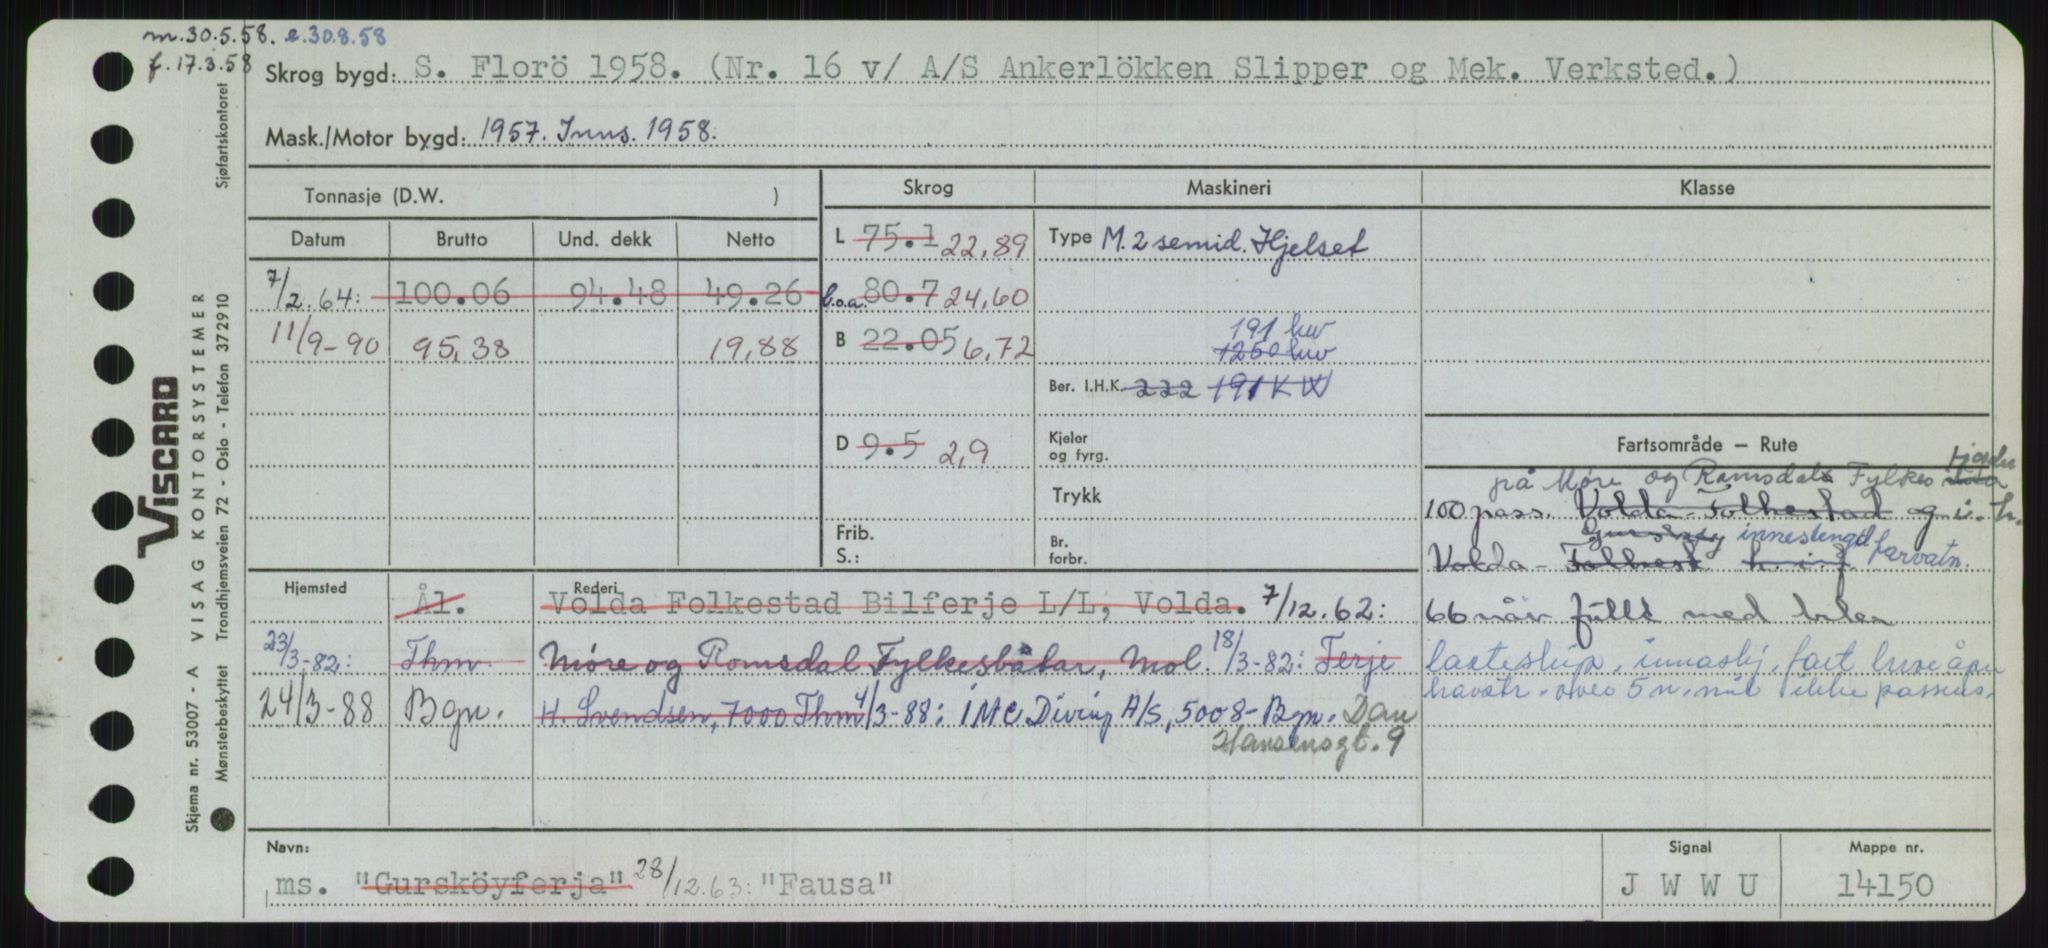 m. 30.5.58. e. 30.8.58
f. 17.3.58
Skrog bygd: S. Florö 1958. (Nr. 16 v/ A/S Ankerlökken Slipper og Mek. Verksted.)
Mask./Motor bygd: 1957. Inns. 1958.
Sjøfartskontoret
VISCARD
Skjema nr. 53007 - A VISAG KONTORSYSTEMER
Mønsterbeskyttet Trondhjemsveien 72 - Oslo - Telefon 372910
Tonnasje (D.W. )
Datum Brutto Und. dekk Netto
7/2.64: 100.06 94.48 49.26
11/9-90 95,38 19,88
Skrog
L 75.1 22,89
l.o.a. 80.7 24,60
B 22.05 6,72
D 9.5 2,9
Frib.
S.:
Maskineri
Type M. 2 semid. Hjelset
191 kw
1250 kw
Ber. I.H.K. 222 191 KW
Kjeler
og fyrg.
Trykk
Br.
forbr.
Klasse
Fartsområde – Rute
fjorder
på Møre og Romsdals Fylkes
100 pass. Volda - Folkestad og i. h.
Gurskøy innestengt farvatn.
Volda - Folkest
66 når fullt med biler
lasteskip, innaskj. fart
over 5 n. mil ikke
Hjemsted Rederi
Ål. Volda Folkestad Bilferje L/L, Volda. 7/12.62:
23/3-82: Thm. Møre og Romsdal Fylkesbåtar, Mol. 18/3-82: Terje
24/3-88 Bgn. H. Svendsen, 7000 Thm 4/3-88: IMC Diving A/S, 5008-Bgn. Dan
Hansensgt. 9
Navn:
ms. "Gursköyferja" 28/12.63: "Fausa"
Signal
J W W U
Mappe nr.
14150